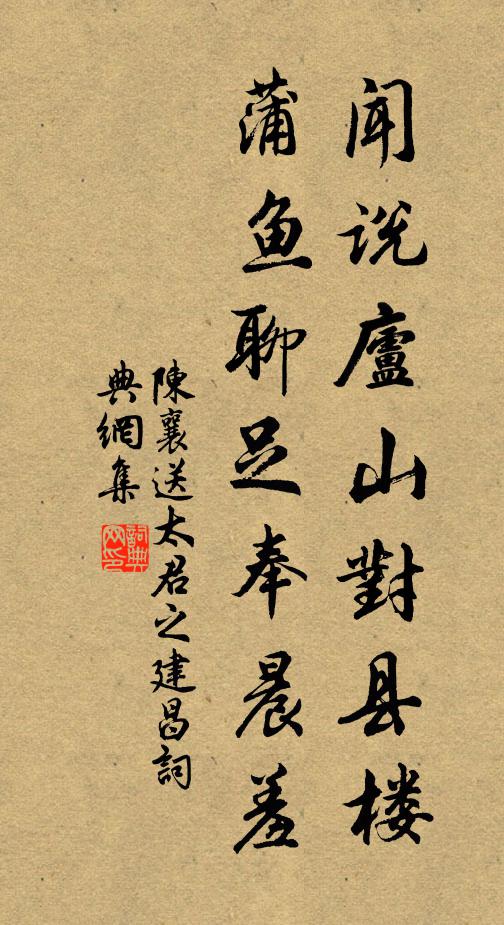 闻说廬山對县楼
蒲鱼聊足奉晨羞
陳襄送太君之建昌詞
典網集
詞典网印